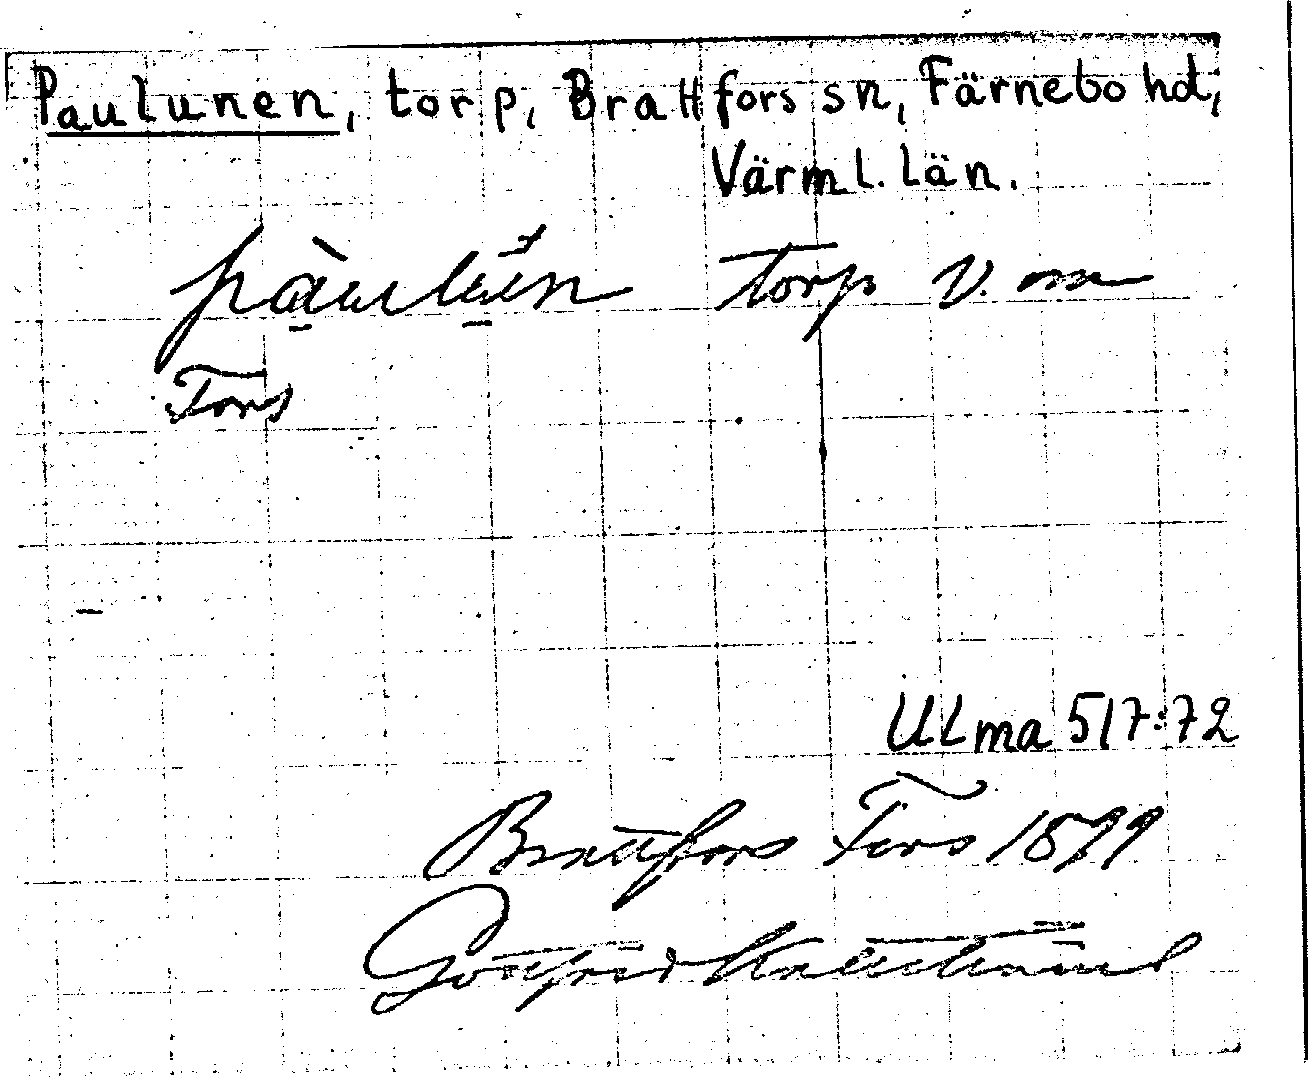 Paulunen, torp, Brattfors sn, Färnebo hd,
Värml. län.
torp V. om
Fors
ULma 517:72
Brattfors Fors 1899
Gottfrid Kallstenius